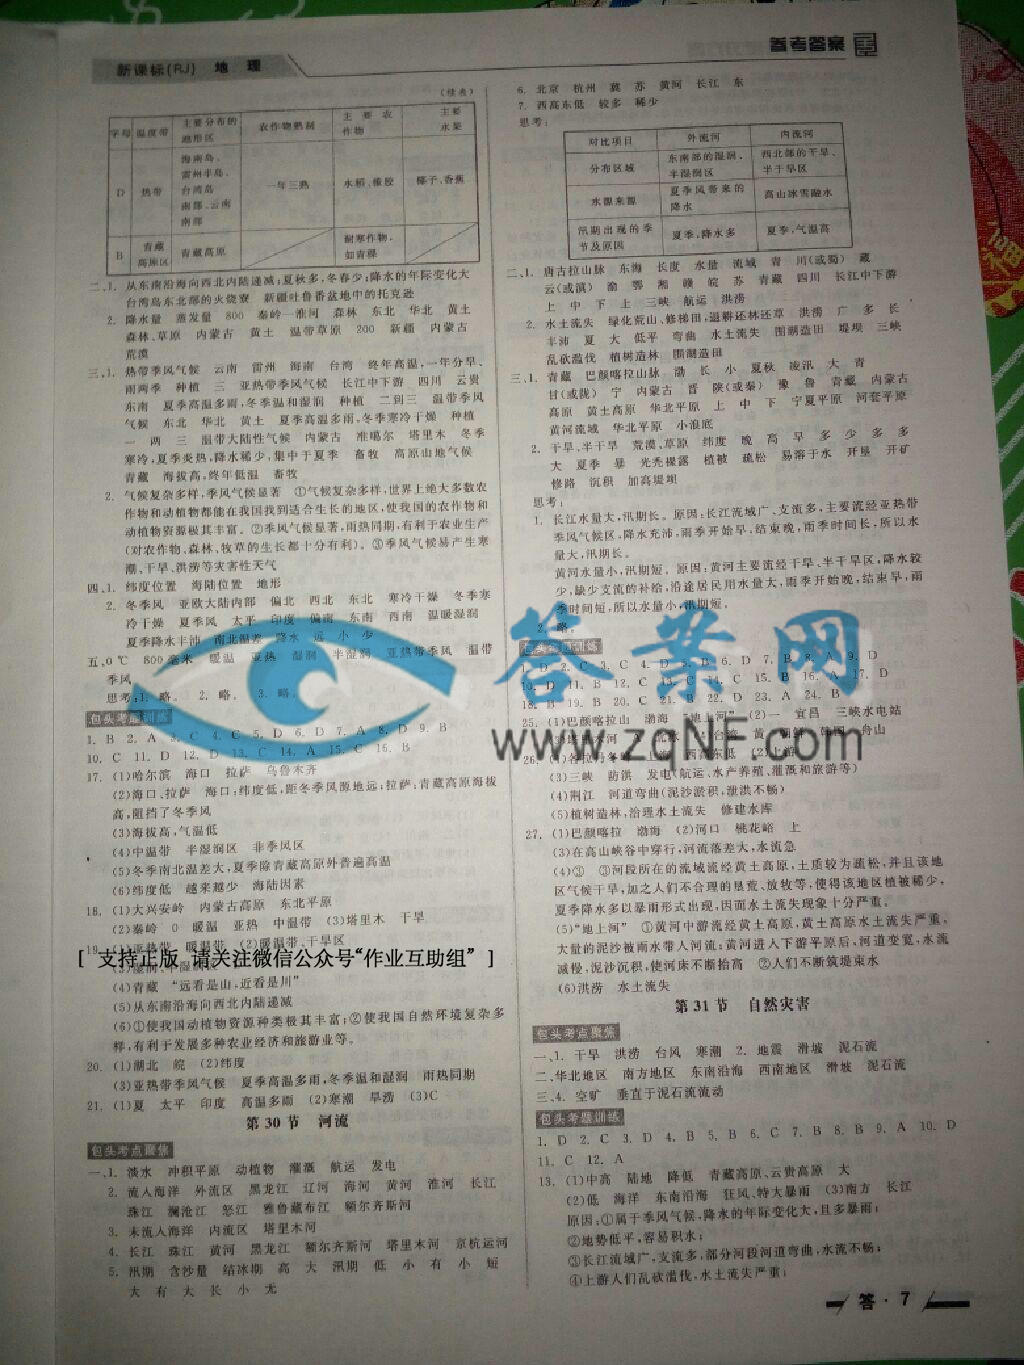 新课标(RJ) 地 理
参考答案
(续表)
字母 温度带 主要分布的地形区 农作物熟制 主要农作物 主要水果
D 热带 海南岛、雷州半岛、台湾岛南部、云南南部 一年三熟 水稻、橡胶 椰子、香蕉
B 青藏高原区 青藏高原 耐寒作物,如青稞
二、1. 从东南沿海向西北内陆递减;夏秋多,冬春少;降水的年际变化大
台湾岛东北部的火烧寮 新疆吐鲁番盆地中的托克逊
2. 降水量 蒸发量 800 秦岭—淮河 森林 东北 华北 黄土
森林、草原 内蒙古 黄土 温带草原 200 新疆 内蒙古
荒漠
三、1. 热带季风气候 云南 雷州 海南 台湾 终年高温,一年分旱、
雨两季 种植 三 亚热带季风气候 长江中下游 四川 云贵
东南 夏季高温多雨,冬季温和湿润 种植 二到三 温带季风
气候 东北 华北 黄土 夏季高温多雨,冬季寒冷干燥 种植
一 两 三 温带大陆性气候 内蒙古 准噶尔 塔里木 冬季
寒冷,夏季炎热,降水稀少,集中于夏季 畜牧 高原山地气候
青藏 海拔高,终年低温 畜牧
2. 气候复杂多样,季风气候显著 ①气候复杂多样,世界上绝大多数农
作物和动植物都能在我国找到适合生长的地区,使我国的农作物和
动植物资源极其丰富。②季风气候显著,雨热同期,有利于农业生产
(对农作物、森林、牧草的生长都十分有利)。③季风气候易产生寒
潮、干旱、洪涝等灾害性天气
四、1. 纬度位置 海陆位置 地形
2. 冬季风 亚欧大陆内部 偏北 西北 东北 寒冷干燥 冬季寒
冷干燥 夏季风 太平 印度 偏南 东南 西南 温暖湿润
夏季降水丰沛 南北温差 降水 远 小 少
五、0 ℃ 800毫米 暖温 亚热 湿润 半湿润 亚热带季风 温带
季风
思考:1. 略。 2. 略。 3. 略。
包头考题训练
1. B 2. A 3. C 4. C 5. D 6. D 7. A 8. D 9. B
10. C 11. D 12. D 13. C 14. A 15. C 16. B
17. (1)哈尔滨 海口 拉萨 乌鲁木齐
(2)海口、拉萨 海口:纬度低,距冬季风源地远;拉萨:青藏高原海拔
高,阻挡了冬季风
(3)海拔高,气温低
(4)中温带 半湿润区 非季风区
(5)冬季南北温差大,夏季除青藏高原外普遍高温
(6)纬度低 越来越少 海陆因素
18. (1)大兴安岭 内蒙古高原 东北平原
(2)秦岭 0 暖温 亚热 中温带 (3)塔里木 干旱
19. (1)亚热带 暖温带 (2)暖温带、干旱区
[ 支持正版 请关注微信公众号“作业互助组” ]
(4)青藏 “远看是山,近看是川”
(5)从东南沿海向西北内陆递减
(6)①使我国动植物资源种类极其丰富;②使我国自然环境复杂多
样,有利于发展多种农业经济和旅游业等。
20. (1)湖北 皖 (2)纬度
(3)亚热带季风气候 夏季高温多雨,冬季温和湿润 雨热同期
21. (1)夏 太平 印度 高温多雨 (2)寒潮 旱涝 (3)C
第30节 河流
包头考点聚焦
一、1. 淡水 冲积平原 动植物 灌溉 航运 发电
2. 流入海洋 外流区 黑龙江 辽河 海河 黄河 淮河 长江
珠江 澜沧江 怒江 雅鲁藏布江 额尔齐斯河
3. 未流入海洋 内流区 塔里木河
4. 长江 珠江 黄河 黑龙江 额尔齐斯河 塔里木河 京杭运河
5. 汛期 含沙量 结冰期 高 大 汛期 低 小 有 小 短
大 有 大 长 小 无
6. 北京 杭州 冀 苏 黄河 长江 东
7. 西高东低 较多 稀少
思考:
对比项目 外流河 内流河
分布区域 东南部的湿润、半湿润区 西北部的干旱、半干旱区
水源来源 夏季风带来的降水 高山冰雪融水
汛期出现的季节及原因 夏季,降水多 夏季,气温高
二、1. 唐古拉山脉 东海 长度 水量 流域 青 川(或蜀) 藏
云(或滇) 渝 鄂 湘 赣 皖 苏 青藏 四川 长江中下游
上 中 下 上 三峡 航运 洪涝
2. 水土流失 绿化荒山、修梯田,退耕还林还草 洪涝 广 多 长
丰沛 夏 大 低平 弯曲 水土流失 围湖造田 堤坝 三峡
乱砍滥伐 植树造林 围湖造田
三、1. 青藏 巴颜喀拉山脉 渤 长 小 夏秋 凌汛 大 青
甘(或陇) 宁 内蒙古 晋 陕(或秦) 豫 鲁 青藏 内蒙古
高原 黄土高原 华北平原 上 中 下 宁夏平原 河套平原
黄河流域 华北平原 小浪底
2. 干旱、半干旱 荒漠、草原 纬度 晚 高 早 多 少 多 多
大 夏季 暴 光秃裸露 植被 疏松 易溶于水 开垦 开矿
修路 沉积 加高堤坝
思考:
1. 长江水量大,汛期长。原因:长江流域广、支流多,主要流经亚热带
季风气候区,降水充沛,雨季开始早,结束晚,雨季时间长,所以水
量大,汛期长。
黄河水量小,汛期短。原因:黄河主要流经干旱、半干旱区,降水较
少,缺少支流的补给,沿途居民用水量大,雨季开始晚,结束早,雨
季时间短,所以水量小,汛期短。
2. 略。
包头考题训练
1. D 2. C 3. C 4. D 5. B 6. D 7. B 8. A 9. D
10. D 11. B 12. C 13. C 14. C 15. B 16. A 17. D
18. B 19. B 20. C 21. B 22. D 23. A 24. B
25. (1)巴颜喀拉山 渤海 “地上河” (2)一 宜昌 三峡水电站
舟山
(3)三峡 防洪 发电(航运、水产养殖、灌溉和旅游等)
(4)荆江 河道弯曲(泥沙淤积,泄洪不畅)
(5)植树造林,治理水土流失 修建水库
27. (1)巴颜喀拉 渤海 (2)河口 桃花峪 上
(3)在高山峡谷中穿行,河流落差大,水流急
(4)③ ③河段所在的流域流经黄土高原,土质较为疏松,并且该地
区气候干旱,加之人们不合理的垦荒、放牧等,使得该地区植被稀少,
夏季降水多以暴雨形式出现,因而水土流失现象十分严重。
(5)“地上河” ①黄河中游流经黄土高原,黄土高原水土流失严重,
大量的泥沙被雨水带入河流;黄河进入下游平原后,河道变宽,水流
减慢,泥沙沉积,使河床不断抬高 ②人们不断筑堤束水
(6)洪涝 水土流失
第31节 自然灾害
包头考点聚焦
一、1. 干旱 洪涝 台风 寒潮 2. 地震 滑坡 泥石流
二、华北地区 南方地区 东南沿海 西南地区 滑坡 泥石流
三、4. 空旷 垂直于泥石流流动
包头考题训练
1. D 2. C 3. D 4. B 5. B 6. C 7. B 8. B 9. A 10. D
11. C 12. A
13. (1)中高 陆地 降低 青藏高原、云贵高原 大
(2)低 海洋 东南沿海 狂风、特大暴雨 (3)南方 长江
原因:①属于季风气候,降水的年际变化大,且多暴雨;
②地势低平,容易积水;
③长江流域广,支流多,部分河段河道弯曲,水流不畅;
④上游人们乱砍滥伐,水土流失严重;
答案网
www.zqNF.com
答·7